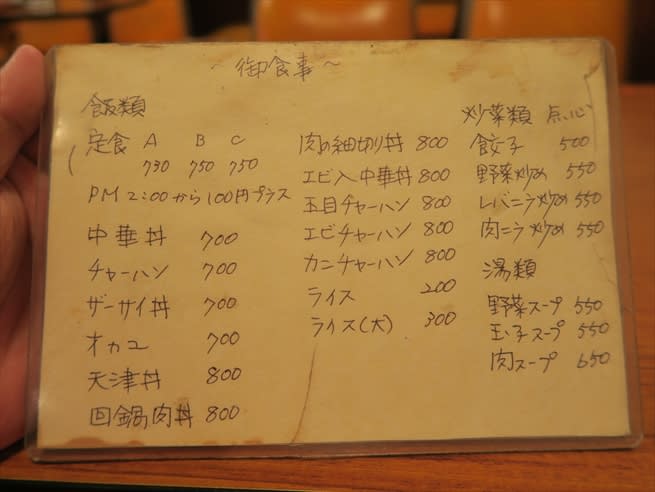 ～御食事～
飯類
定食 A B C
730 750 750
PM 2:00から100円プラス
中華丼 700
チャーハン 700
ザーサイ丼 700
オカユ 700
天津丼 800
回鍋肉丼 800
肉の細切り丼 800
エビ入中華丼 800
五目チャーハン 800
エビチャーハン 800
カニチャーハン 800
ライス 200
ライス(大) 300
炒菜類 点心
餃子 500
野菜炒め 550
レバニラ炒め 550
肉ニラ炒め 550
湯類
野菜スープ 550
玉子スープ 550
肉スープ 650